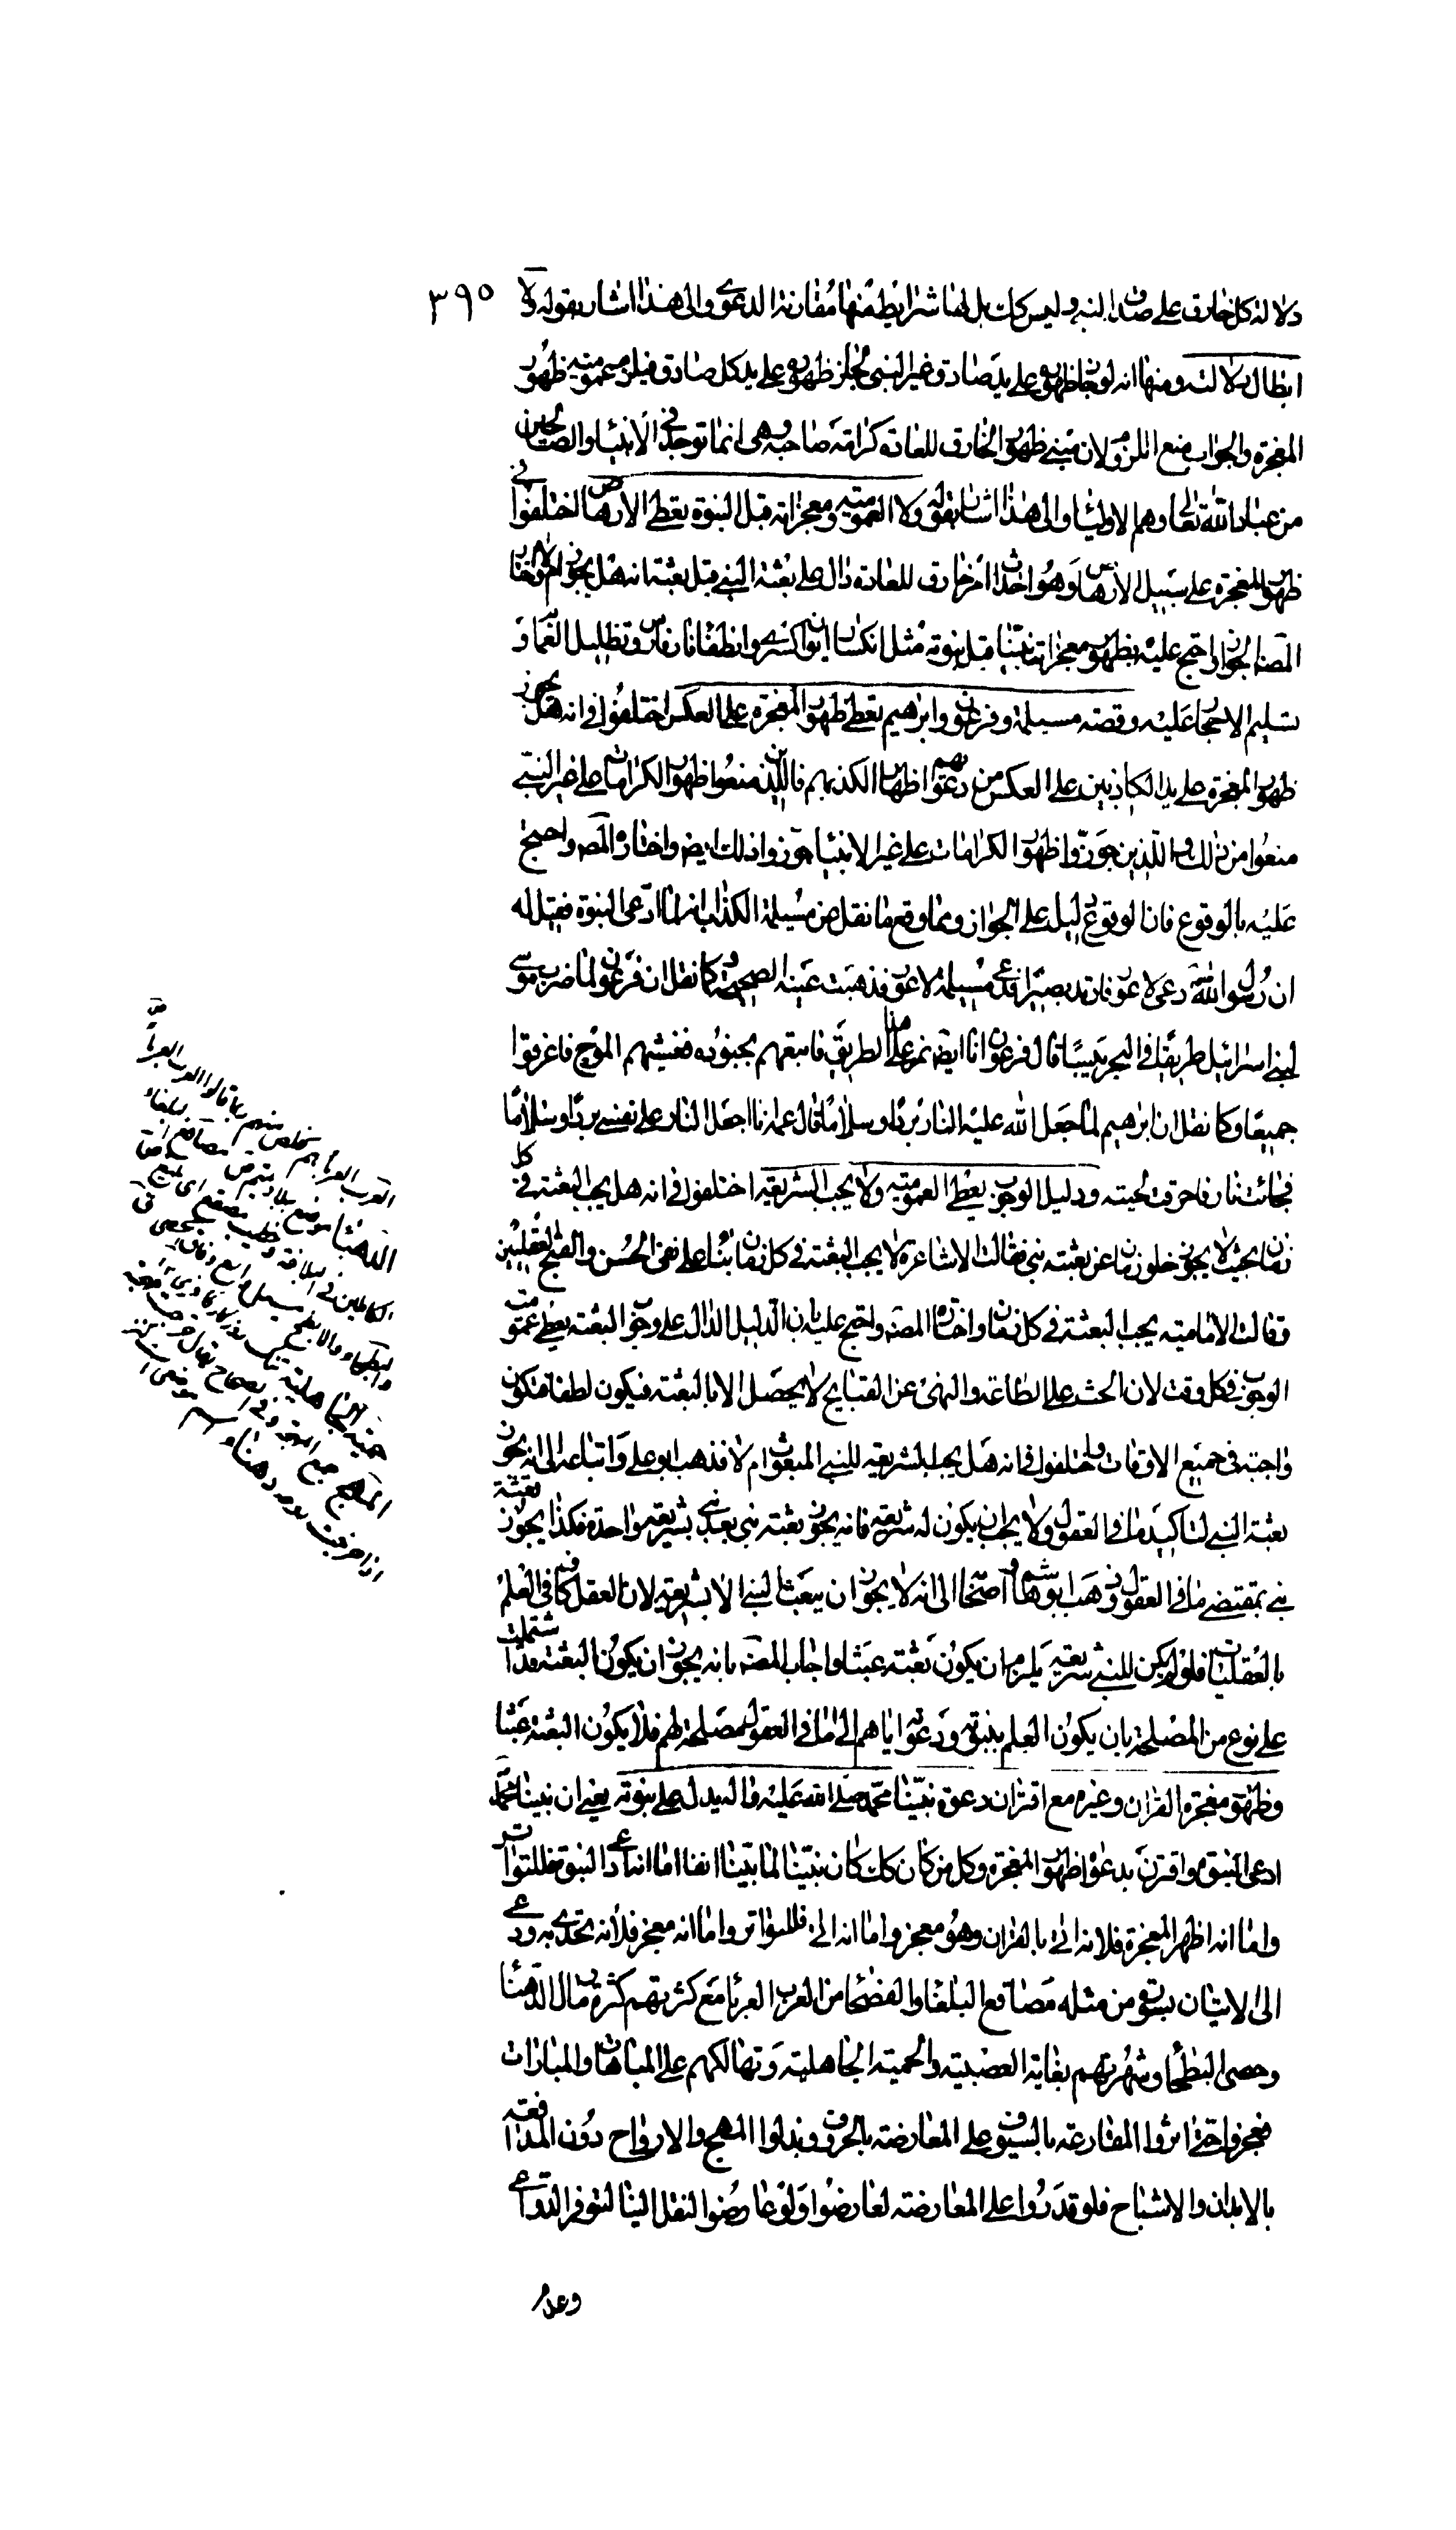 ٣٩٥
دلالة كل خارق على صدق النبى وليس كك بل لها شرايط منها مقارنة الدعوى والى هذا اشار بقوله ولا
ابطال دلالته ومنها انه لو جاز ظهوره على يد صادق غير النبى لجاز ظهوره على يد كل صادق فيلزم عمومية ظهور
المعجزة والجواب منع الملازمة لان مبنى ظهور الخارق للعادة كرامة صاحبه وهى انما توجد فى الانبياء والصالحين
من عباد الله تعالى وهم الاولياء والى هذا اشار بقوله ولا العمومية ومعجزاته قبل النبوة يعطى الارهاص اختلفوا فى
ظهور المعجزة على سبيل الارهاص وهو احداث امر خارق للعادة دال على بعثة النبى قبل بعثته انه هل يجوز ام لا واختار
المصنف الجواز واحتج عليه بظهور معجزات نبينا قبل نبوته مثل انكسار ايوان كسرى وانطفاء نار فارس وتظليل الغمام و
تسليم الاحجار عليه وقصة مسيلمة وفرعون وابراهيم يعطى ظهور المعجزة على العكس اختلفوا فى انه هل يجوز
ظهور المعجزة على يد الكاذبين على العكس من دعوتهم اظهارا لكذبهم فالذين منعوا ظهور الكرامات على غير النبى
منعوا من ذلك والذين جوزوا ظهور الكرامات على غير الانبياء جوزوا ذلك ايضا واختاره المصنف واحتج
عليه بالوقوع فان الوقوع دليل على الجواز ومما وقع ما نقل عن مسيلمة الكذاب انه لما ادعى النبوة فقيل له
ان رسول الله دعى لاعور فارتد بصيرا فدعى مسيلمة لاعور فذهبت عينه الصحيحة وكما نقل ان فرعون لما ضرب موسى
لبنى اسرائيل طريقا فى البحر يبسا قال فرعون انا ايضا نمر على هذا الطريق فاتبعهم بجنوده فغشيهم الموج فاغرقوا
جميعا وكما نقل ان ابرهيم لما جعل الله عليه النار بردا وسلاما قال عمه انا اجعل النار على نفسى بردا وسلاما
فجائت نار فاحرقت لحيته ودليل الوجوب يعطى العمومية ولا يجب الشريعة اختلفوا فى انه هل يجب البعثة فى كل
زمان بحيث لا يجوز خلو زمان عن بعثة نبى فقالت الاشاعرة لا يجب البعثة فى كل زمان بناء على نفى الحسن والقبح العقليين
وقالت الامامية يجب البعثة فى كل زمان واختاره المصنف واحتج عليه بان الدليل الدال على وجوب البعثة يعطى عمومية
الوجوب فى كل وقت لان الحث على الطاعة والنهى عن القبايح لا يحصل الا بالبعثة فيكون لطفا فتكون
واجبة فى جميع الاوقات واختلفوا فى انه هل يجب الشريعة للنبى المبعوث ام لا فذهب ابو على واتباعه الى انه يجوز
بعثة النبى لتاكيد ما فى العقول ولا يجب ان يكون له شريعة فانه يجوز بعثة نبى بعد نبى بشريعة واحدة فكذا يجوز بعثة
نبى بمقتضى ما فى العقول وذهب ابو هاشم واصحابه الى انه لا يجوز ان يبعث النبى الا بشريعة لان العقل كاف فى العلم
بالعقليات فلو لم يكن للنبى شريعة يلزم ان يكون بعثته عبثا واجاب المصنف بانه يجوز ان يكون البعثة قد اشتملت
على نوع من المصلحة بان يكون العلم بنبوته ودعوته اياهم الى ما فى العقول مصلحة لهم فلا يكون البعثة عبثا
وظهور معجزة القران وغيره مع اقتران دعوة نبينا محمد صلى الله عليه واله يدل على نبوته يعنى ان نبينا محمد
ادعى النبوة واقترن بدعواه ظهور المعجزة وكل من كان كك كان نبيا لما بينا انفا اما انه ادعى النبوة فللتواتر
واما انه اظهر المعجزة فلانه اتى بالقران وهو معجز واما انه اتى فللتواتر واما انه معجز فلانه تحدى به ودعى
الى الاتيان بسورة من مثله مصاقع البلغاء والفصحاء من العرب العرباء مع كثرتهم كثرة رمال الدهناء
وحصى البطحاء وشهرتهم بغاية العصبية والحمية الجاهلية وتهالكهم على المباهات والمبارات
فعجزوا حتى اثروا المقارعة بالسيوف على المعارضة بالحروف وبذلوا المهج والارواح دون المدافعة
بالابدان والاشباح فلو قدروا على المعارضة لعارضوا ولو عارضوا لنقل الينا لتوفر الدواعى
وعدم
العرب العرباء هم خلص منهم
الدهناء موضع ببلاد تميم